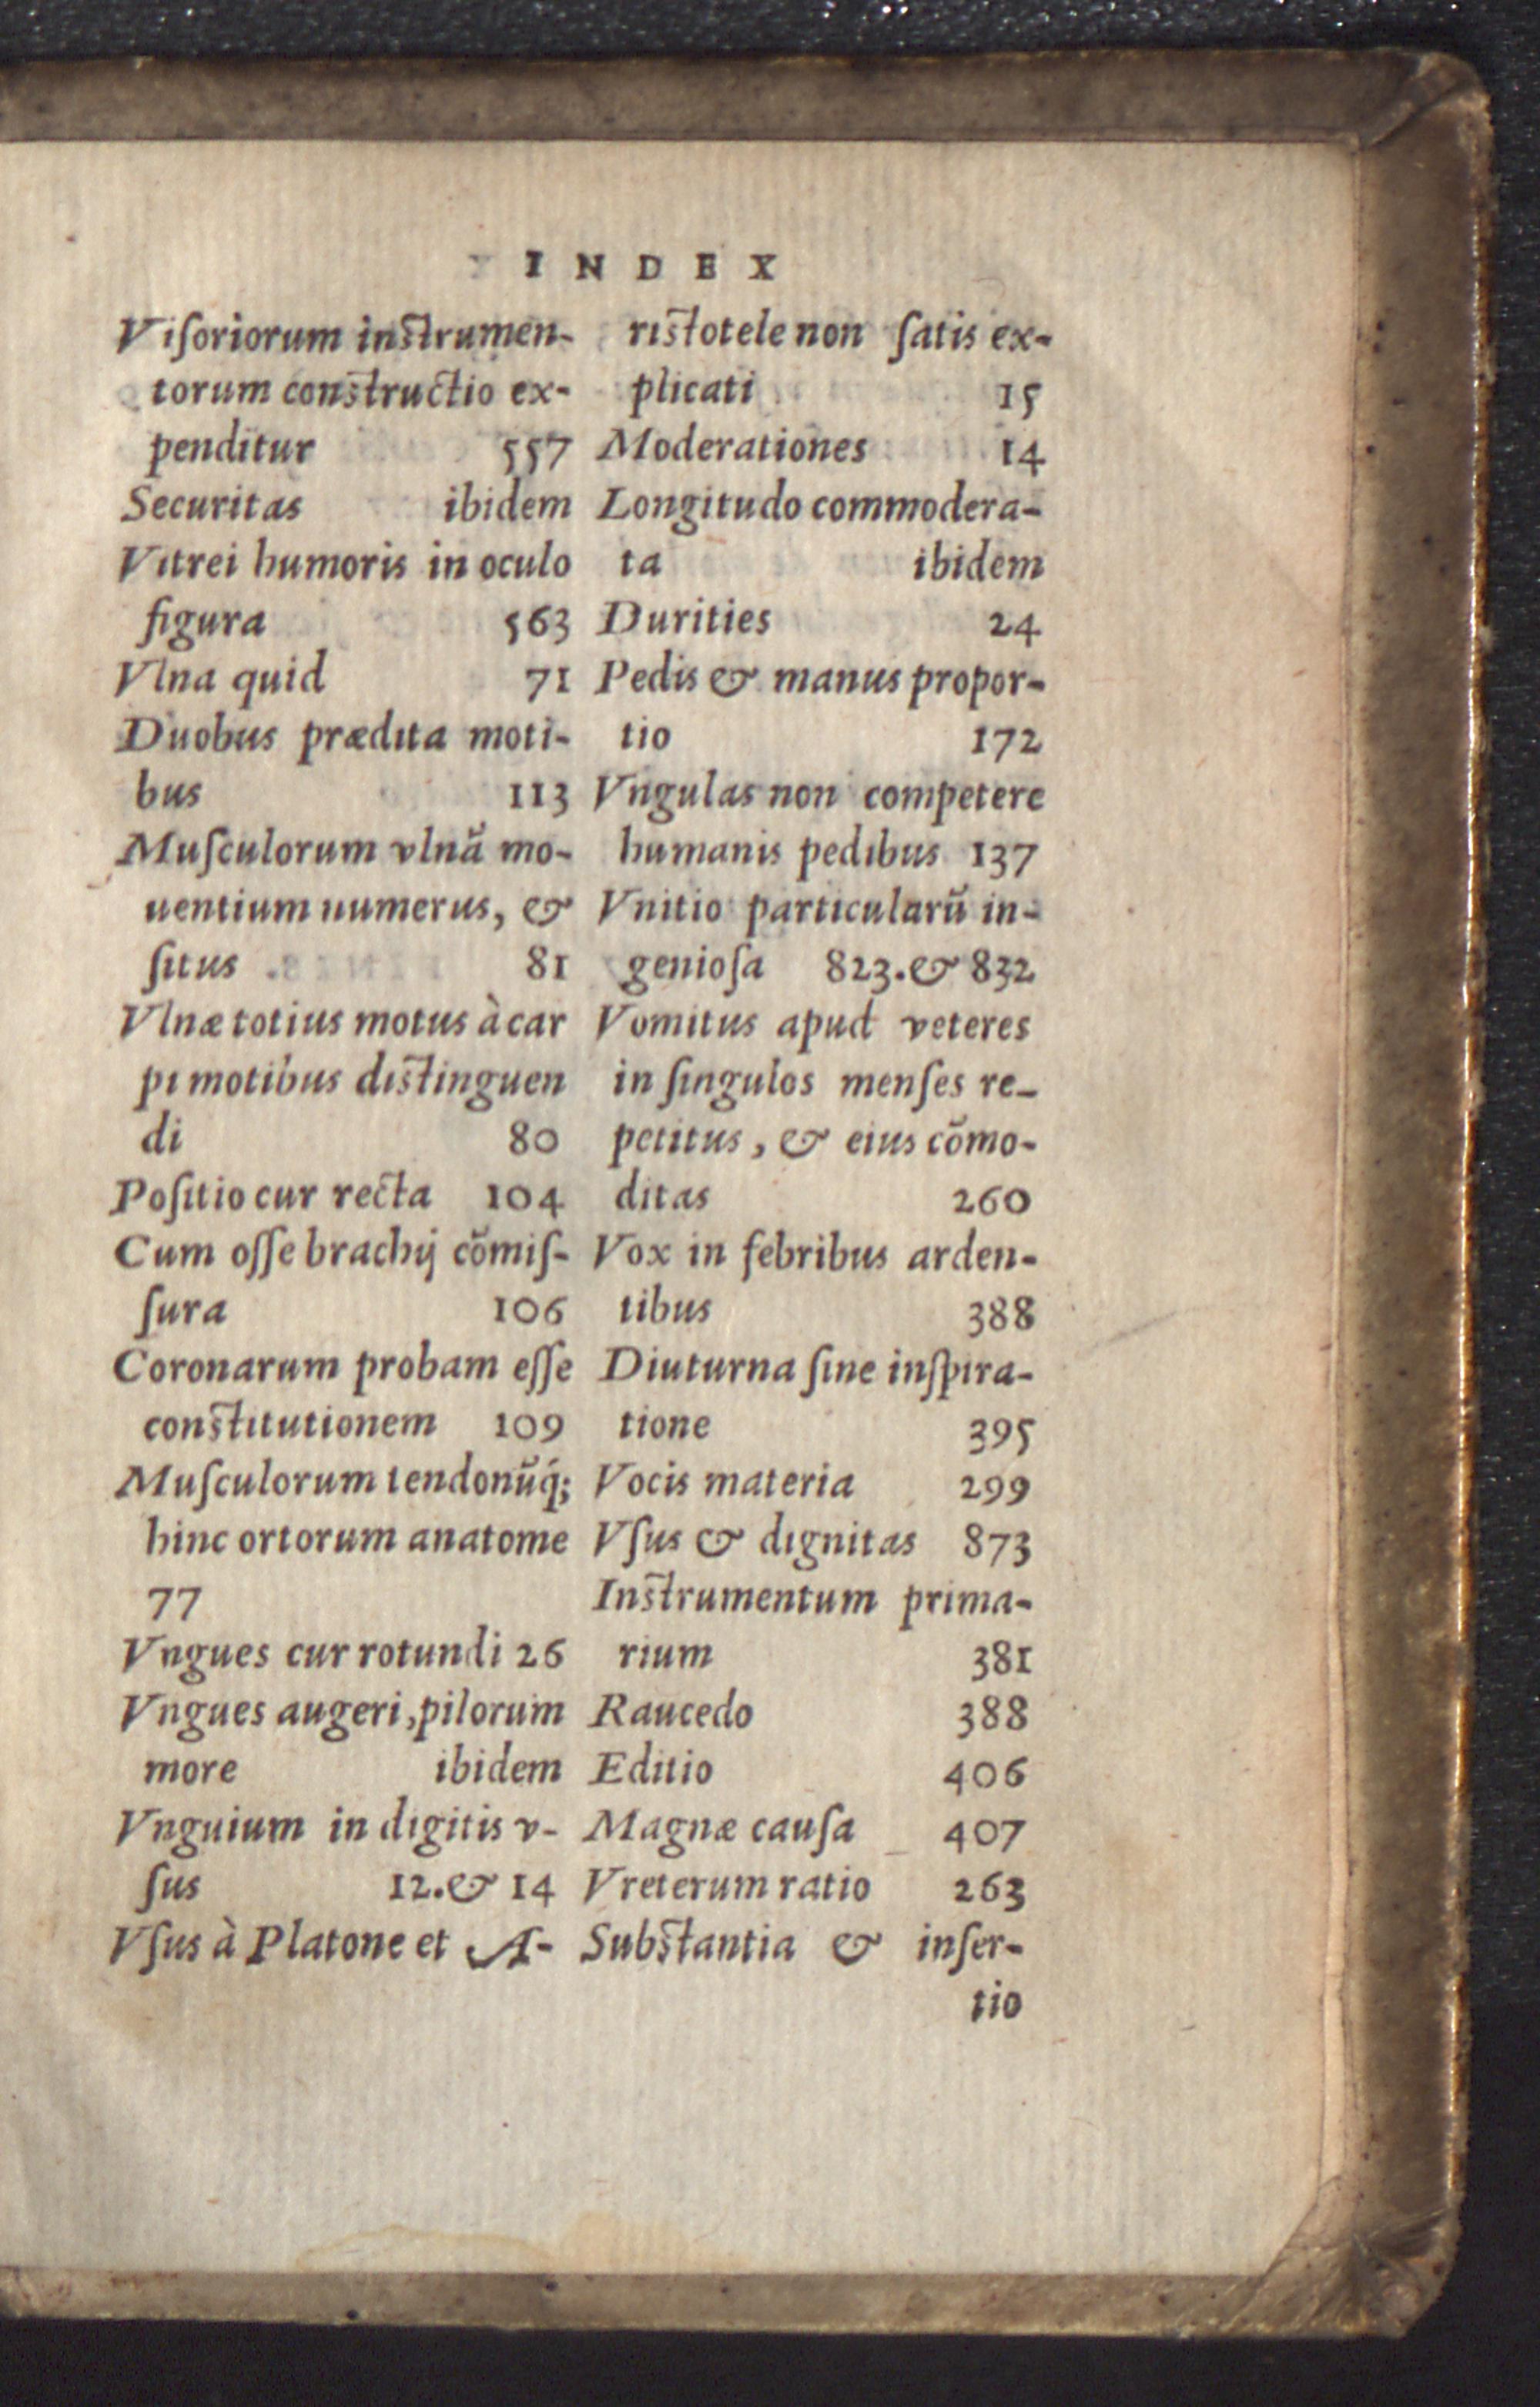 INDEX
Viſoriorum inſtrumen-
torum conſtructio ex-
penditur 557
Securitas ibidem
Vitrei humoris in oculo
figura 563
Vlna quid 71
Duobus prædita moti-
bus 113
Muſculorum vlnā mo-
uentium numerus, &
ſitus 81
Vlnæ totius motus à car
pi motibus diſtinguen
di 80
Poſitio cur recta 104
Cum oſſe brachij cōmiſ-
ſura 106
Coronarum probam eſſe
conſtitutionem 109
Muſculorum tendonūq́;
hinc ortorum anatome
77
Vngues cur rotundi 26
Vngues augeri, pilorum
more ibidem
Vnguium in digitis v-
ſus 12. & 14
Vſus à Platone et A-
riſtotele non ſatis ex-
plicati 15
Moderationes 14
Longitudo commodera-
ta ibidem
Durities 24
Pedis & manus propor-
tio 172
Vngulas non competere
humanis pedibus 137
Vnitio particularū in-
genioſa 823. & 832
Vomitus apud veteres
in ſingulos menſes re-
petitus, & eius cōmo-
ditas 260
Vox in febribus arden-
tibus 388
Diuturna ſine inſpira-
tione 395
Vocis materia 299
Vſus & dignitas 873
Inſtrumentum prima-
rium 381
Raucedo 388
Editio 406
Magnæ cauſa 407
Vreterum ratio 263
Subſtantia & inſer-
tio